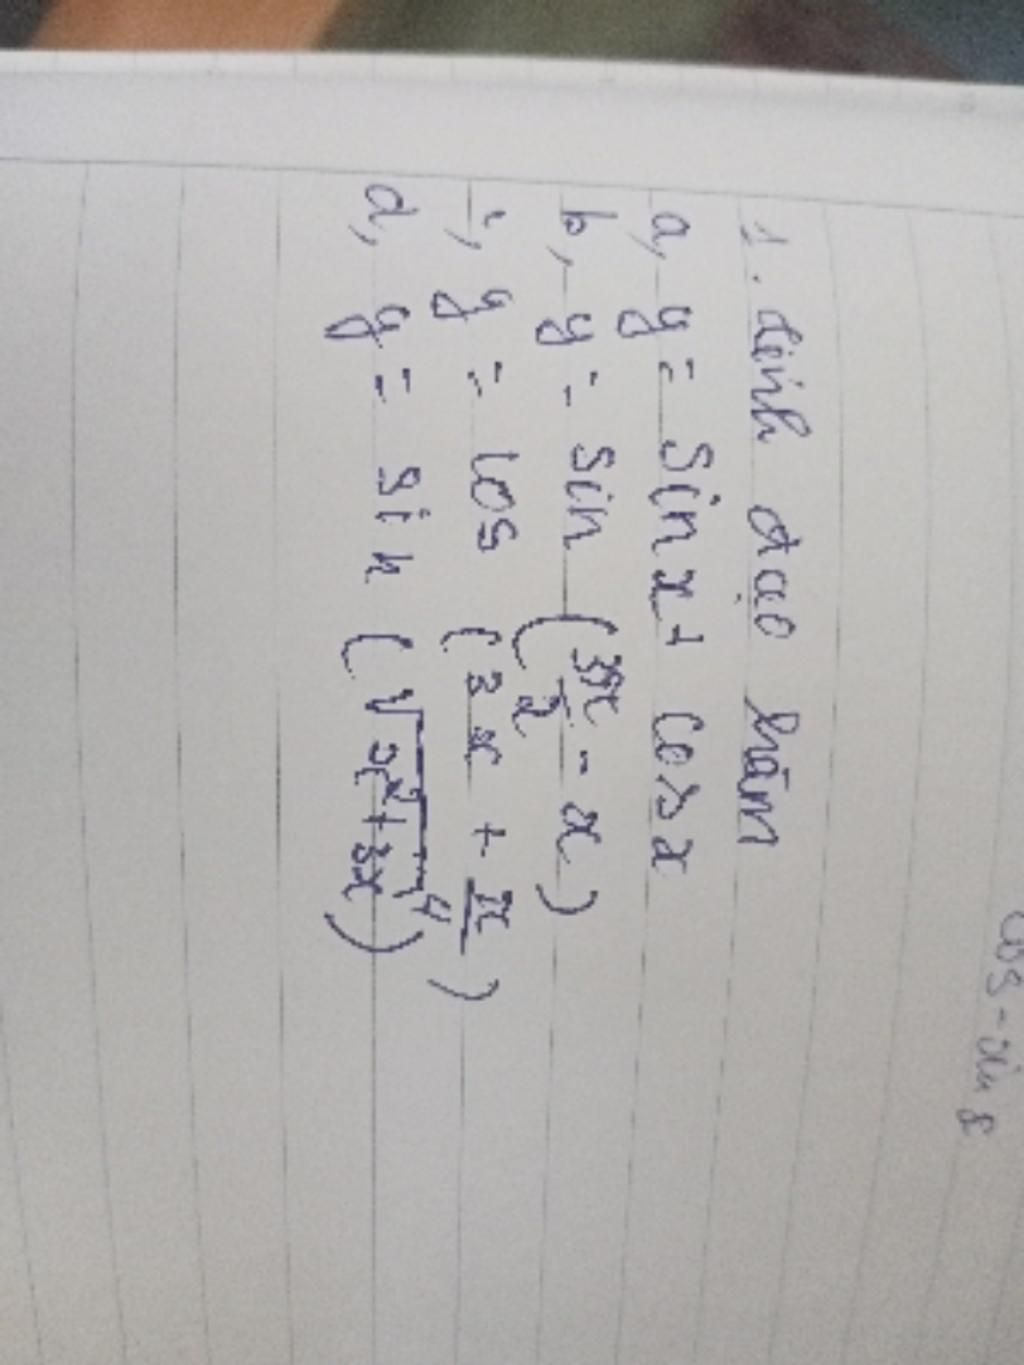 1. Tính đạo hàm
a, y = sin x + cos x
b, y = sin (3π/2 - x)
c, y = cos (3x + π/4)
d, y = sin (√x²+3x)
cos - sin